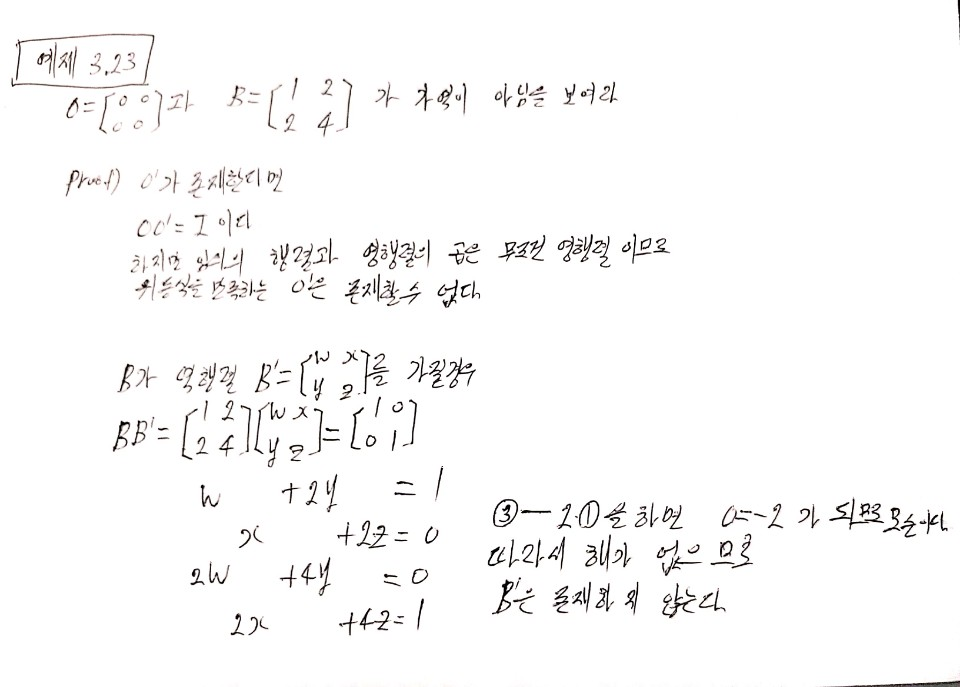 예제 3.23
O=[0 0 0 0]과 B=[1 2 2 4]가 가역이 아님을 보여라
Proof) O'가 존재한다면
OO'=I 이다
하지만 임의의 행렬과 영행렬의 곱은 무조건 영행렬 이므로
위 등식을 만족하는 O'은 존재할 수 없다
B가 역행렬 B'=[w x y z]를 가질경우
BB'=[1 2 2 4][w x y z]=[1 0 0 1]
w +2y =1
x +2z=0
2w +4y =0
2x +4z=1
③-2·①을 하면 0=-2 가 되므로 모순이다.
따라서 해가 없으므로
B'은 존재하지 않는다